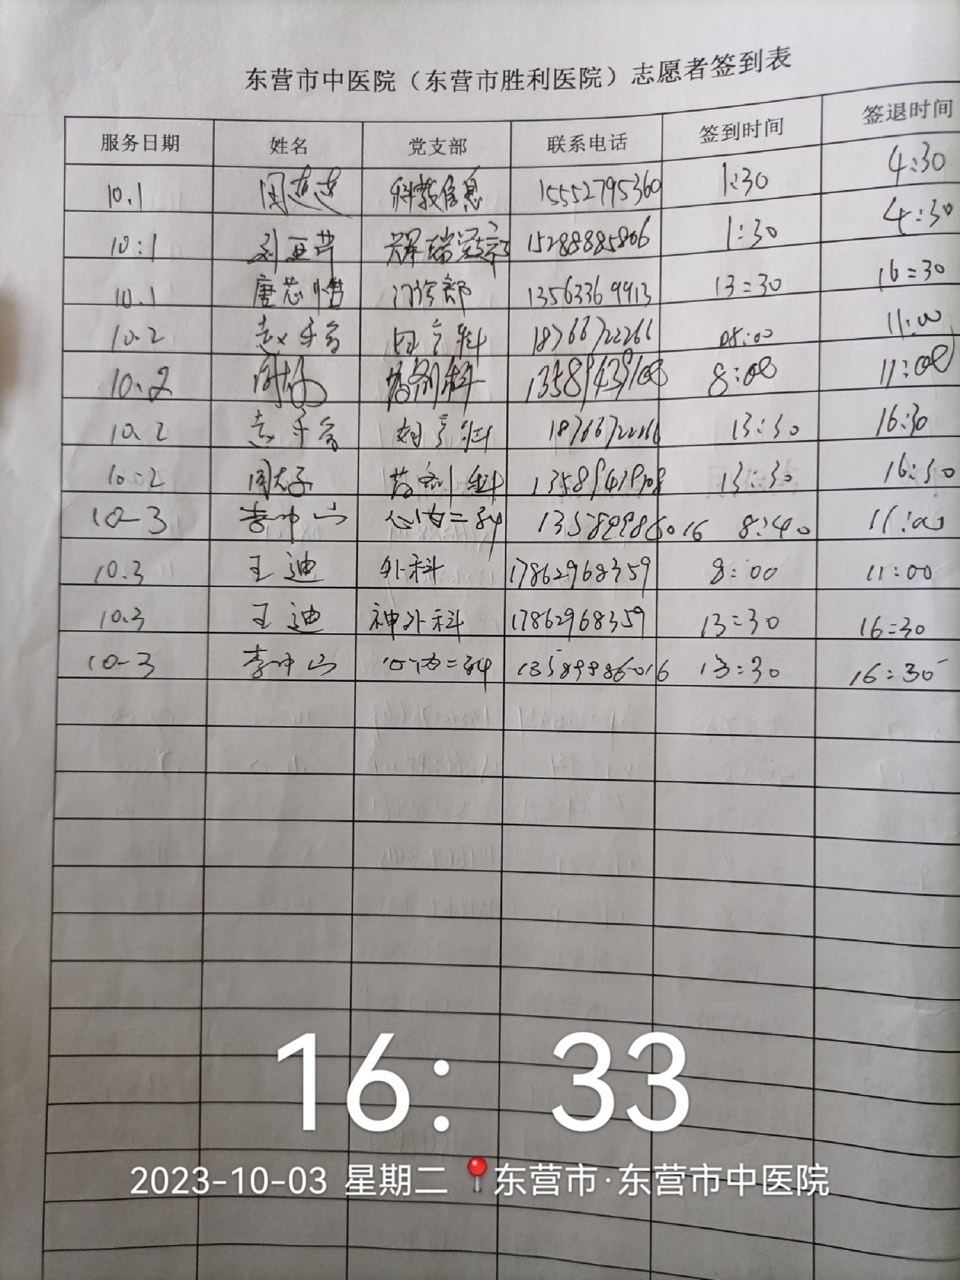 东营市中医院（东营市胜利医院）志愿者签到表
服务日期 姓名 党支部 联系电话 签到时间 签退时间
10.1 科教信息 15552795360 1:30 4:30
10:1 15288885806 1:30 4:30
10.1 门诊部 13563369913 13:30 16:30
10.2 18766722266 08:00 11:00
10.2 药剂科 8:00 11:00
10.2 13:30 16:30
10.2 药剂科 13:30 16:30
10-3 李中山 心内二科 13589986016 8:40 11:00
10.3 王迪 外科 17862968359 8:00 11:00
10.3 王迪 神外科 17862968359 13:30 16:30
10-3 李中山 心内二科 13589986016 13:30 16:30
16: 33
2023-10-03 星期二 东营市·东营市中医院